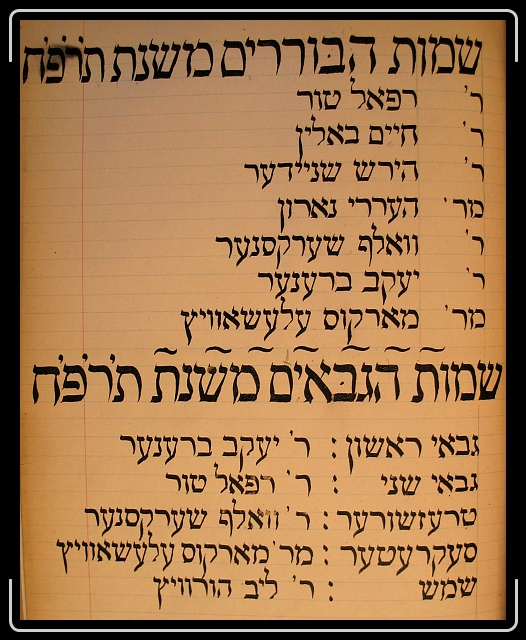 שמות הבוררים משנת תרפח
ר' רפאל טור
ר' חיים באלין
ר' הירש שניידער
מר' העררי נארון
ר' וואלף שערקסנער
ר' יעקב ברענער
מר' מארקוס עלעשאוויץ
שמות הגבאים משנת תרפח
גבאי ראשון : ר' יעקב ברענער
גבאי שני : ר' רפאל טור
טרעזשורער : ר' וואלף שערקסנער
סעקרעטער : מר' מארקוס עלעשאוויץ
שמש : ר' ליב הורוויץ